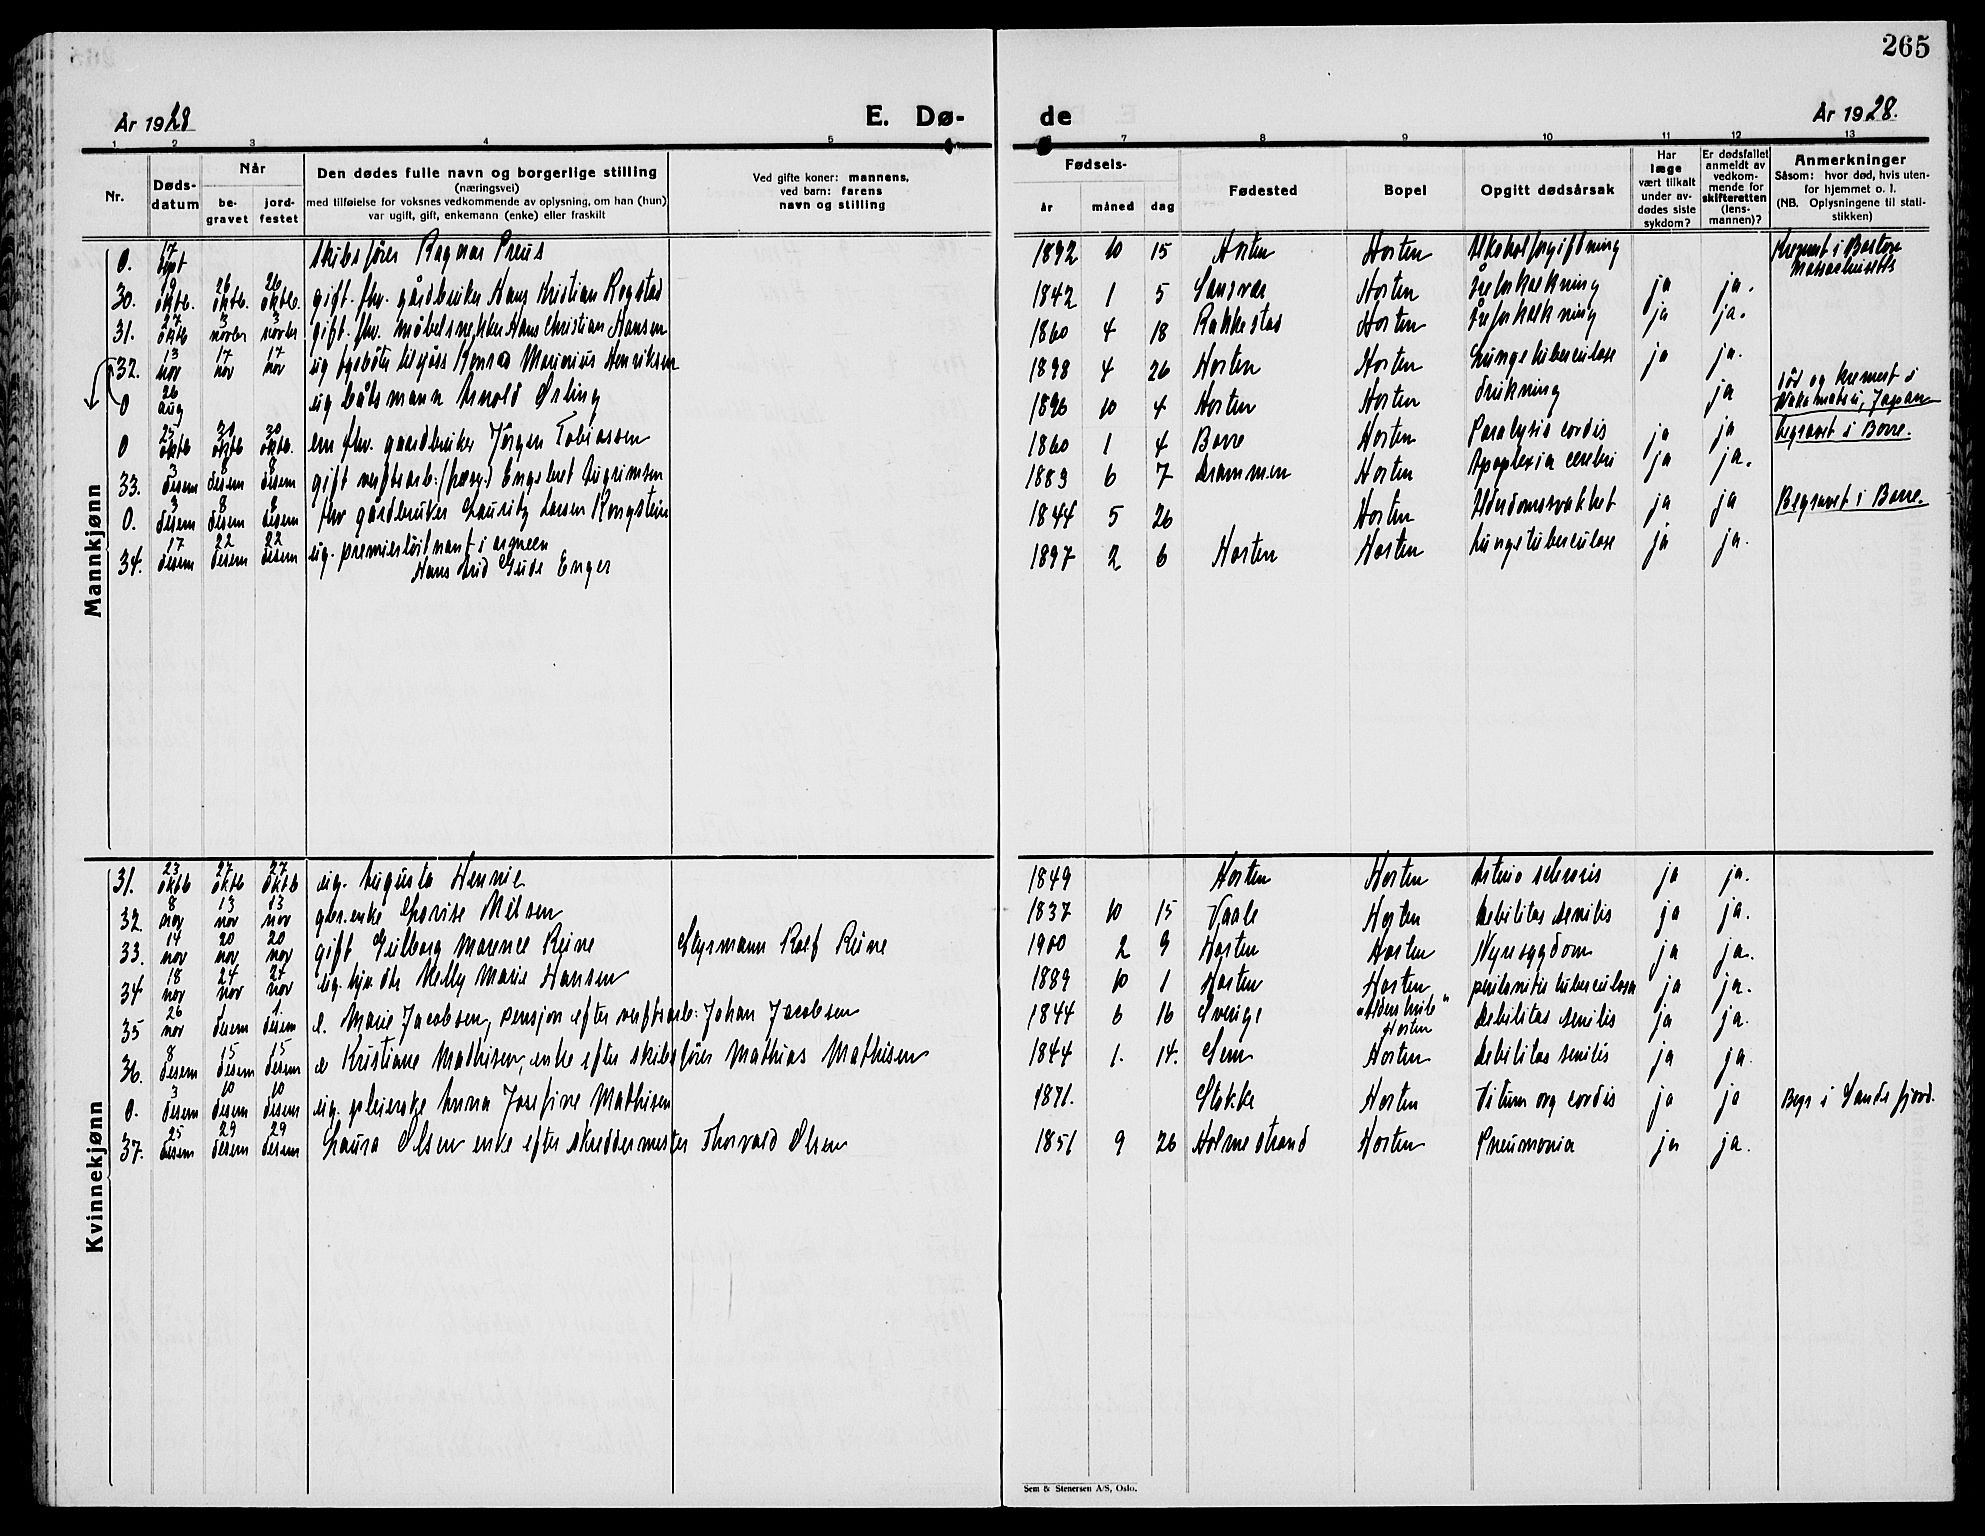 265
År 1928
E. Dø-
de
År 1928.
1 2 3 4 5
6 7 8 9 10 11 12 13
Nr.
Døds-
datum
Når
be-
gravet
jord-
festet
Den dødes fulle navn og borgerlige stilling
(næringsvei)
med tilføielse for voksnes vedkommende av oplysning, om han (hun)
var ugift, gift, enkemann (enke) eller fraskilt
Ved gifte koner: mannens,
ved barn: farens
navn og stilling
Fødsels-
år måned dag
Fødested
Bopel
Opgitt dødsårsak
Har
læge
vært tilkalt
under av-
dødes siste
sykdom?
Er dødsfallet
anmeldt av
vedkom-
mende for
skifteretten
(lens-
mannen)?
Anmerkninger
Såsom: hvor død, hvis uten-
for hjemmet o. l.
(NB. Oplysningene til stati-
stikken)
Mannkjønn
0. 17 sept skibsfører Ragnar Preus 1892 10 15 Horten Horten Alkoholforgiftning Kremert i Boston Massachusetts
30. 19 oktb. 26 oktb. 26 oktb. gift. fhv. gårdbruker Hans Kristian Rogstad 1842 1 5 Sansvær Horten Åreforkalkning ja ja.
31. 27 oktb 3 novbr 3 novbr gift. fhv. møbelsnekker Hans Christian Hansen 1860 4 18 Rakkestad Horten Åreforkalkning ja ja.
32. 13 nov 17 nov 17 nov ug bysbøter tilsjøss Konrad Marinius Henriksen 1898 4 26 Horten Horten Lungetuberculose ja ja.
0 26 aug ug båtsmann Arnold Ørling 1896 10 4 Horten Horten drukning ja død og kremert i Wakamatsu, Japan
0 25 oktb 30 oktb 30 oktb. em fhv. gaardbruker Jörgen Tobiassen 1860 1 4 Borre Horten Paralysis cordis ja ja begravet i Borre.
33. 3 desem 8 desem 8 desem gift verftsarb: Engebret Augrimsen 1883 6 7 Drammen Horten Apoplexia cerebri ja ja.
0. 3 desem 8 desem 8 desem fhv gårdbruker Lauritz Larsen Kongstein 1844 5 26 Horten Alderdomssvakhet ja ja Begravet i Borre.
34. 17 desem 22 desem 22 desem ug. premierløitnant i armeen
Hans Arild Gude Enger 1897 2 6 Horten Horten Lungetuberculose ja ja.
Kvinnekjønn
31. 23 oktb 27 oktb 27 oktb ug. Augusta Hennie 1849 Horten Horten Arterio sclerosis ja ja.
32. 8 nov 13 nov 13 nov gbr.enke Lovise Nilsen 1837 10 15 Vaale Horten Debilitas senilis ja ja.
33. 14 nov 20 nov 20 nov gift Geilborg Marence Reine Styrmann Rolf Reine 1900 2 9 Horten Horten Nyresygdom ja ja.
34 18 nov 24 nov 24 nov ug. hjv. dtr Nelly Marie Hansen 1889 10 1 Horten Horten peritonitis tuberculosa ja ja.
35 26 nov 1. desem 1. desem e. Marie Jacobsen, pensjon efter verftsarb: Johan Jacobsen 1844 6 16 Sverige "Alders hvile" Horten Debilitas senilis ja ja.
36. 8 desem 15 desem 15 desem e Kristiane Mathisen, enke efter skibsfører Mathias Mathisen 1844 1. 14. Sem Horten Debilitas senilis ja ja.
0. 3 desem 10 desem 10 desem ug. pleierske Anna Josefine Mathisen 1871. Stokke Horten Vitium org cordis ja ja Begr i Sandefjord.
37. 25 desem 29 desem 29 desem Laura Olsen enke efter skreddermester Thorvald Olsen 1851 9 26 Holmestrand Horten Pneumonia ja ja.
Sem & Stenersen A/S, Oslo.